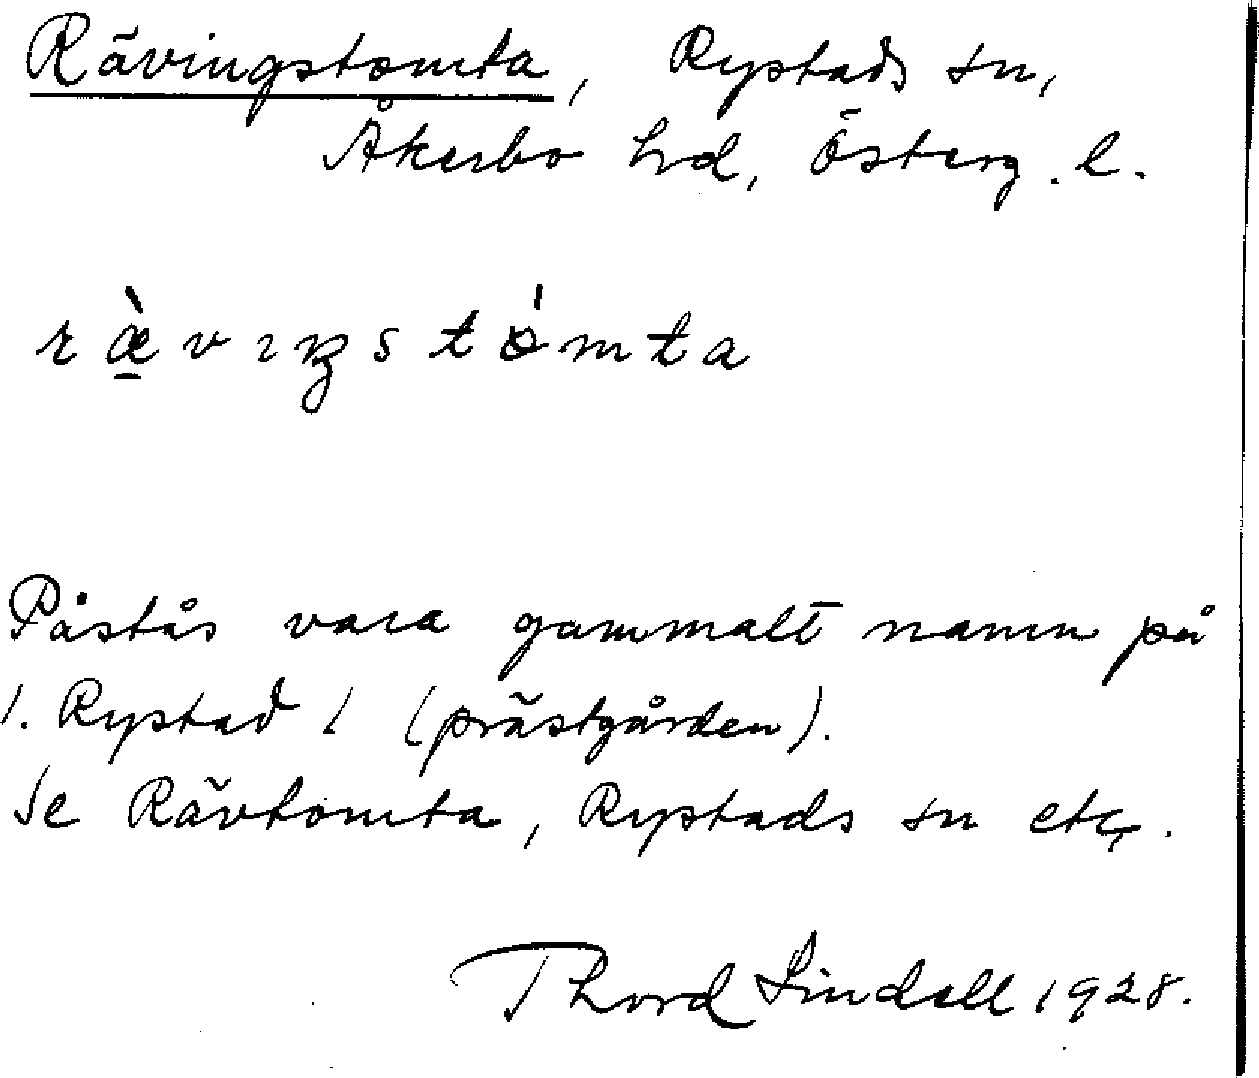 Rävingstomta, Rystads sn,
Åkerbo hd, Österg. l.
ræ̀vıŋstómta
Påstås vara gammalt namn på
1. Rystad 1 (prästgården).
Se Rävtomta, Rystads sn etc.
Thord Lindell 1928.